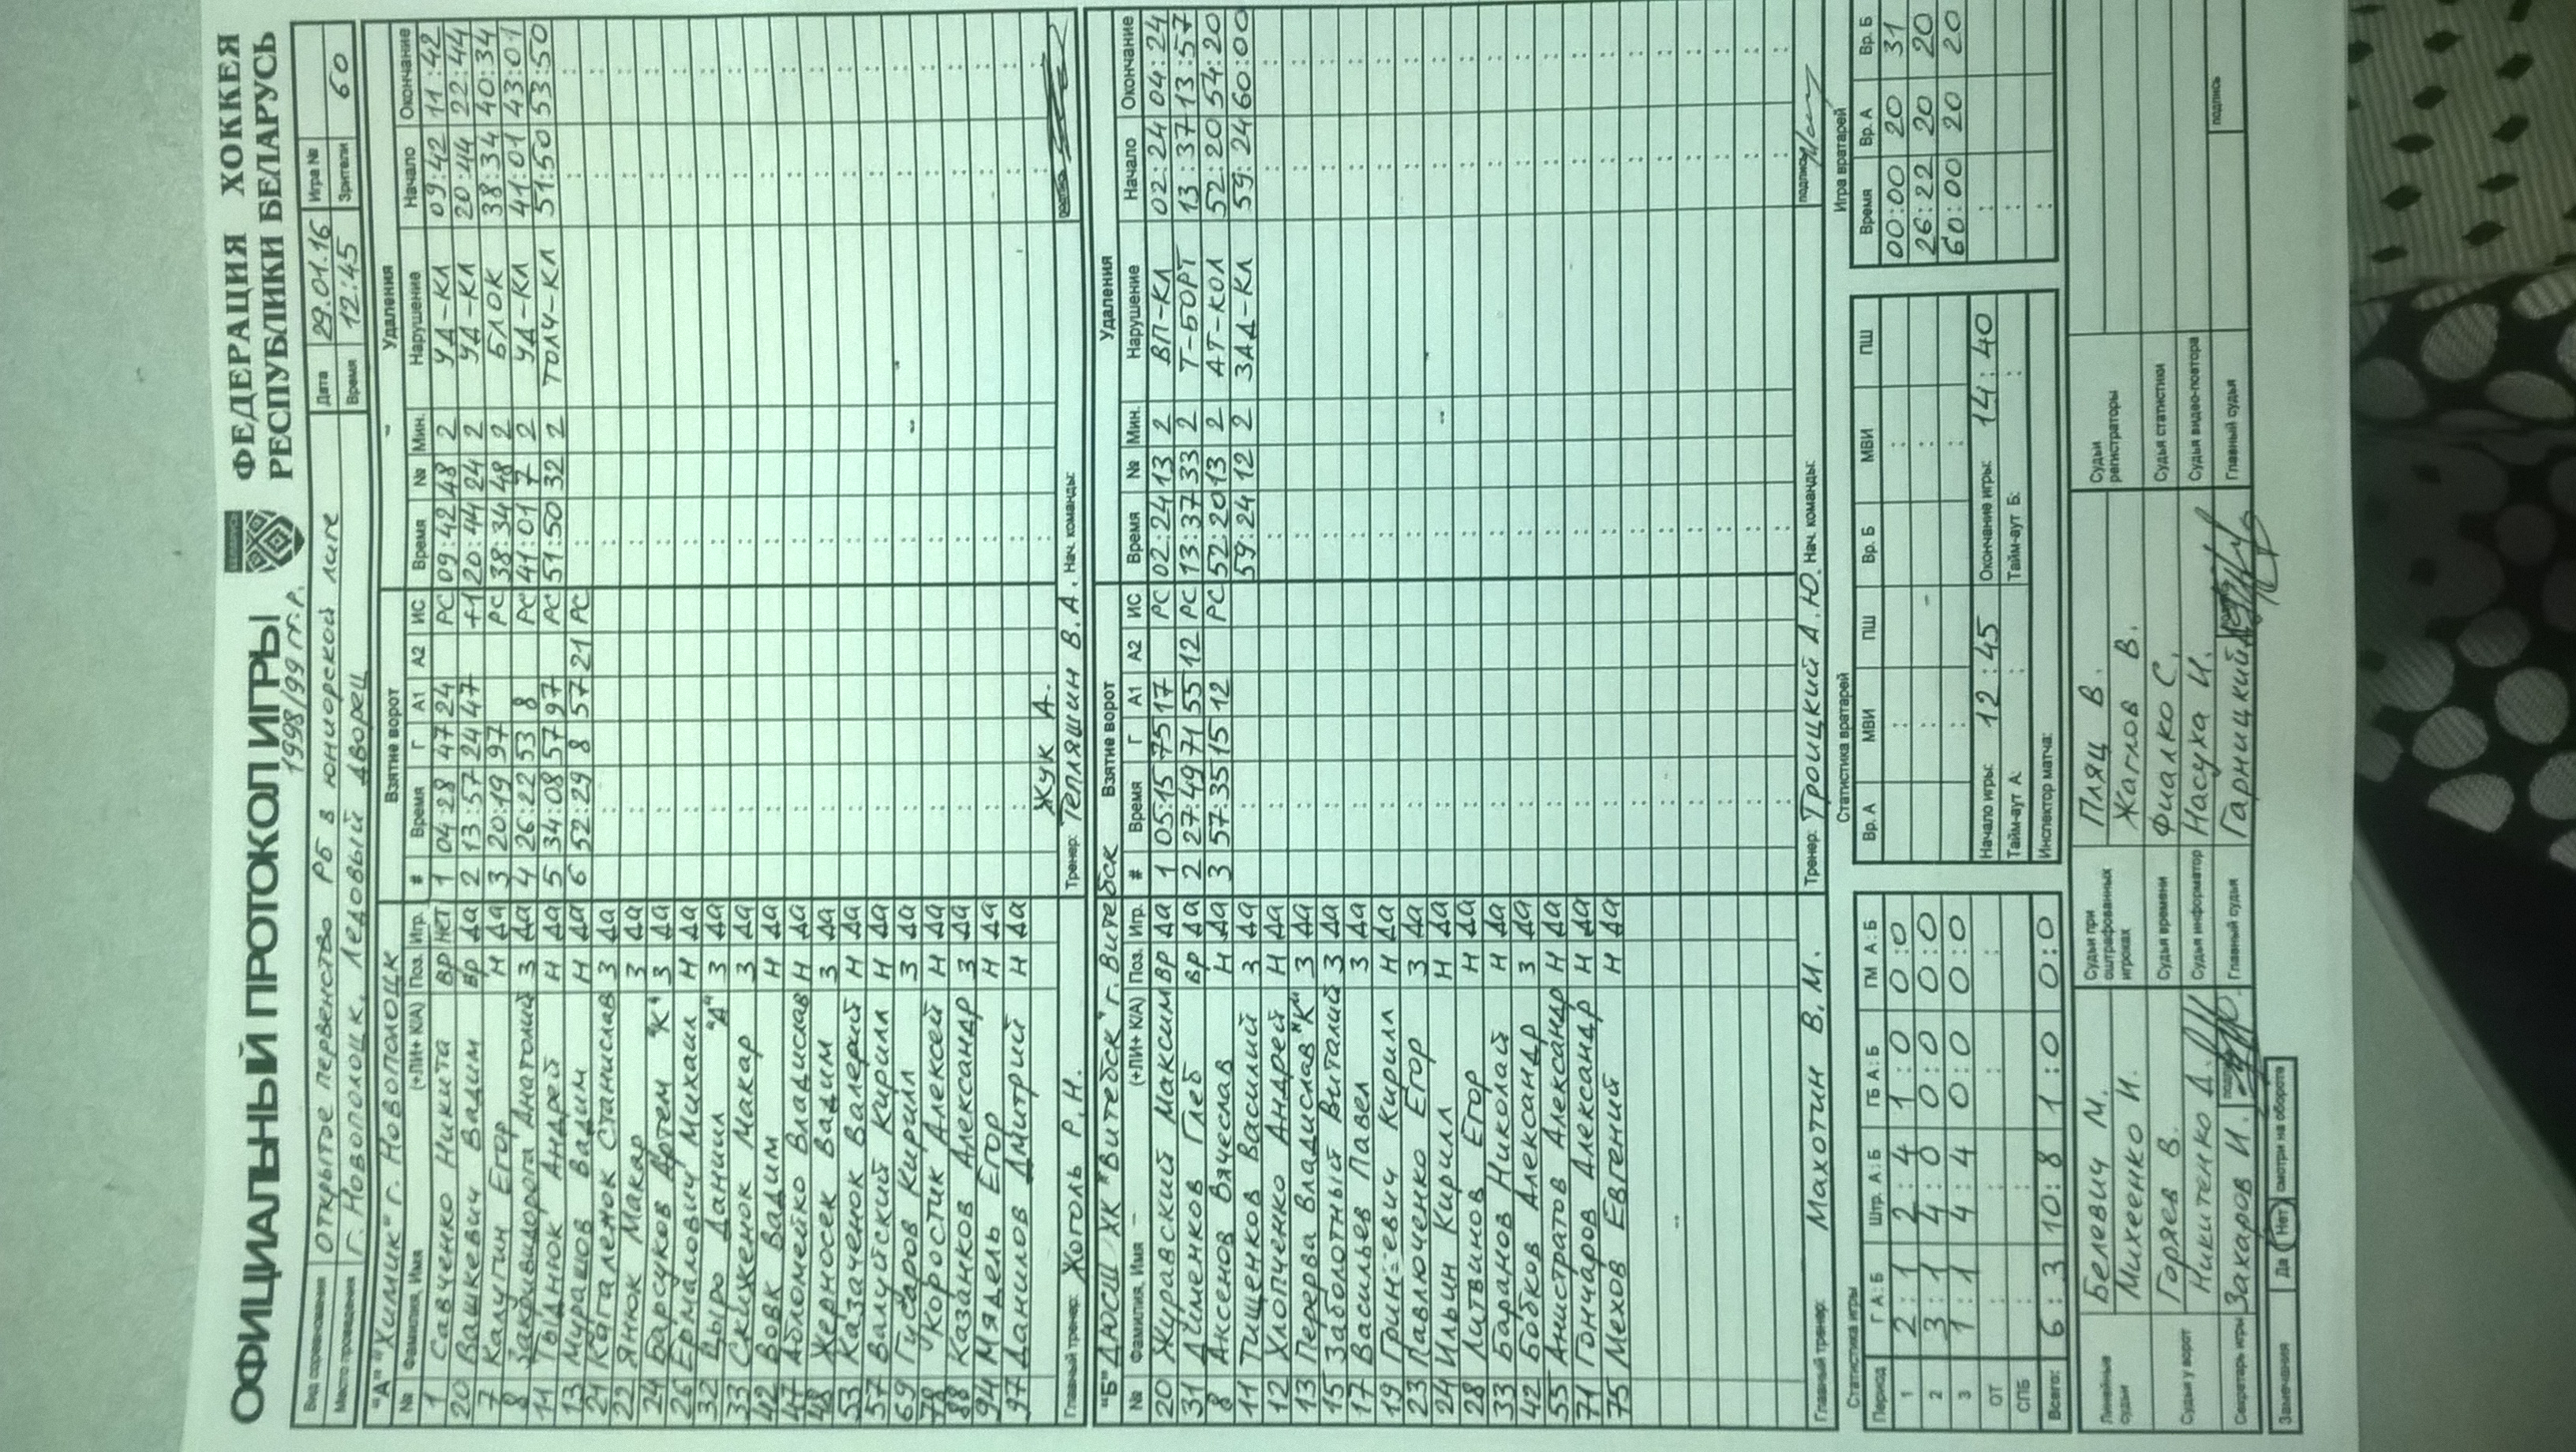 ОФИЦИАЛЬНЫЙ ПРОТОКОЛ ИГРЫ
1998/99 г.р.
ФЕДЕРАЦИЯ ХОККЕЯ
РЕСПУБЛИКИ БЕЛАРУСЬ
Вид соревнования Открытое первенство РБ в юниорской лиге Дата 29.01.16 Игра №
Место проведения г. Новополоцк, Ледовый дворец Время 12:45 Зрители 60
"А" "Химик" г. Новополоцк Взятие ворот Удаления
№ Фамилия, Имя (+ЛИ+ К(А) Поз. Игр. # Время Г А1 А2 ИС Время № Мин. Нарушение Начало Окончание
1 Савченко Никита ВР нет 1 04:28 47 24 РС 09:42 48 2 УД-КЛ 09:42 11:42
20 Вашкевич Вадим ВР да 2 13:57 24 47 +1 20:44 24 2 УД-КЛ 20:44 22:44
7 Калугин Егор Н да 3 20:19 97 РС 38:34 48 2 БЛОК 38:34 40:34
8 Закривидорога Анатолий З да 4 26:22 53 8 РС 41:01 7 2 УД-КЛ 41:01 43:01
11 Тыднюк Андрей Н да 5 34:08 57 97 РС 51:50 32 2 ТОЛЧ-КЛ 51:50 53:50
13 Мурашов Вадим Н да 6 52:29 8 57 21 РС
21 Кагаленок Станислав З да
22 Янюк Макар З да
24 Барсуков Артем "К" З да
26 Ермалович Михаил Н да
32 Дыро Даниил "А" З да
33 Скиженок Макар З да
42 Вовк Вадим Н да
47 Абломейко Владислав Н да
48 Жерносек Вадим З да
53 Казаченок Валерий Н да
57 Валуйский Кирилл Н да
69 Гусаров Кирилл З да
78 Коростик Алексей Н да
88 Казанков Александр З да
94 Мядель Егор Н да
97 Данилов Дмитрий Н да
Жук А.
Главный тренер: Жоголь Р.Н. Тренер: Тепляшин В.А. Нач. команды:
"Б" ДЮСШ ХК "Витебск" г. Витебск Взятие ворот Удаления
№ Фамилия, Имя (+ЛИ+ К(А) Поз. Игр. # Время Г А1 А2 ИС Время № Мин. Нарушение Начало Окончание
20 Журавский Максим ВР да 1 05:15 75 17 РС 02:24 13 2 ВП-КЛ 02:24 04:24
31 Дименков Глеб ВР да 2 27:49 71 55 12 РС 13:37 33 2 Т-БОРТ 13:37 13:57
8 Аксенов Вячеслав Н да 3 57:35 15 12 РС 52:20 13 2 АТ-КОЛ 52:20 54:20
11 Тищенков Василий З да 59:24 12 2 ЗАД-КЛ 59:24 60:00
12 Хлопченко Андрей Н да
13 Перерва Владислав "К" З да
15 Заболотный Виталий З да
17 Васильев Павел З да
19 Гриневич Кирилл Н да
23 Павлюченко Егор З да
24 Ильин Кирилл Н да
28 Литвинов Егор Н да
33 Баранов Николай Н да
42 Бобков Александр З да
55 Анистратов Александр Н да
71 Гончаров Александр Н да
75 Мехов Евгений Н да
Главный тренер: Махотин В.М. Тренер: Троицкий А.Ю. Нач. команды: подпись
Статистика игры
Период Г А:Б Штр. А:Б ГБ А:Б ГМ А:Б
1 2:1 2:4 1:0 0:0
2 3:1 4:0 0:0 0:0
3 1:1 4:4 0:0 0:0
ОТ
СПБ
Всего: 6:3 10:8 1:0 0:0
Статистика вратарей
Вр. А МВИ ПШ Вр. Б МВИ ПШ
Начало игры: 12:45 Окончание игры: 14:40
Тайм-аут А: Тайм-аут Б:
Инспектор матча:
Игра вратарей
Время Вр. А Вр. Б
00:00 20 31
26:22 20 20
60:00 20 20
Линейные судьи Белевич М. Михеенко И.
Судьи у ворот Горяев В. Никитенко Д.
Секретарь игры Захаров И. подпись
Судьи при оштрафованных игроках Пляц В. Жаглов В.
Судья времени Фиалко С.
Судья информатор Насуха И.
Главный судья Гарницкий
Судьи регистраторы
Судья статистики
Судья видео-повтора
Главный судья подпись
Замечания Да Нет смотри на обороте